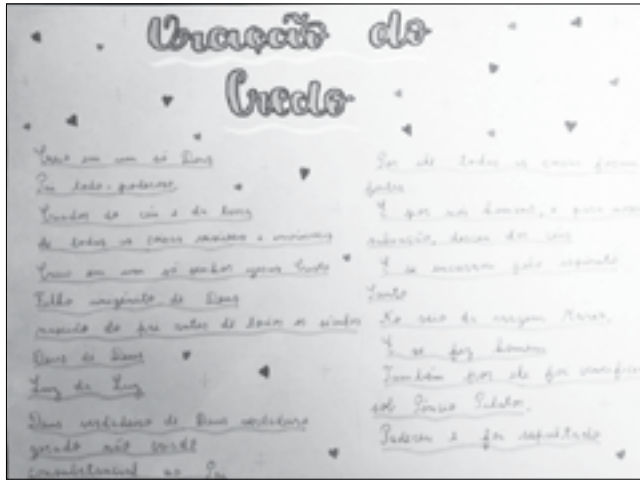 Oração do
Credo
Creio em um só Deus
Pai todo-poderoso,
Criador do céu e da terra
de todas as coisas visíveis e invisíveis
Creio em um só senhor jesus Cristo
Filho unigênito de Deus
nascido do pai antes de todos os séculos
Deus de Deus
Luz da Luz
Deus verdadeiro de Deus verdadeiro
gerado não
consubstancial ao Pai
Por ele todas as coisas foram
feitas
E por nós homens, e para nossa
salvação, desceu dos céus
E se encarnou pelo espirito
Santo
No seio da virgem Maria,
E se fez homem
Também por ele foi
sob Pôncio Pilatos,
Padeceu e foi sepultado